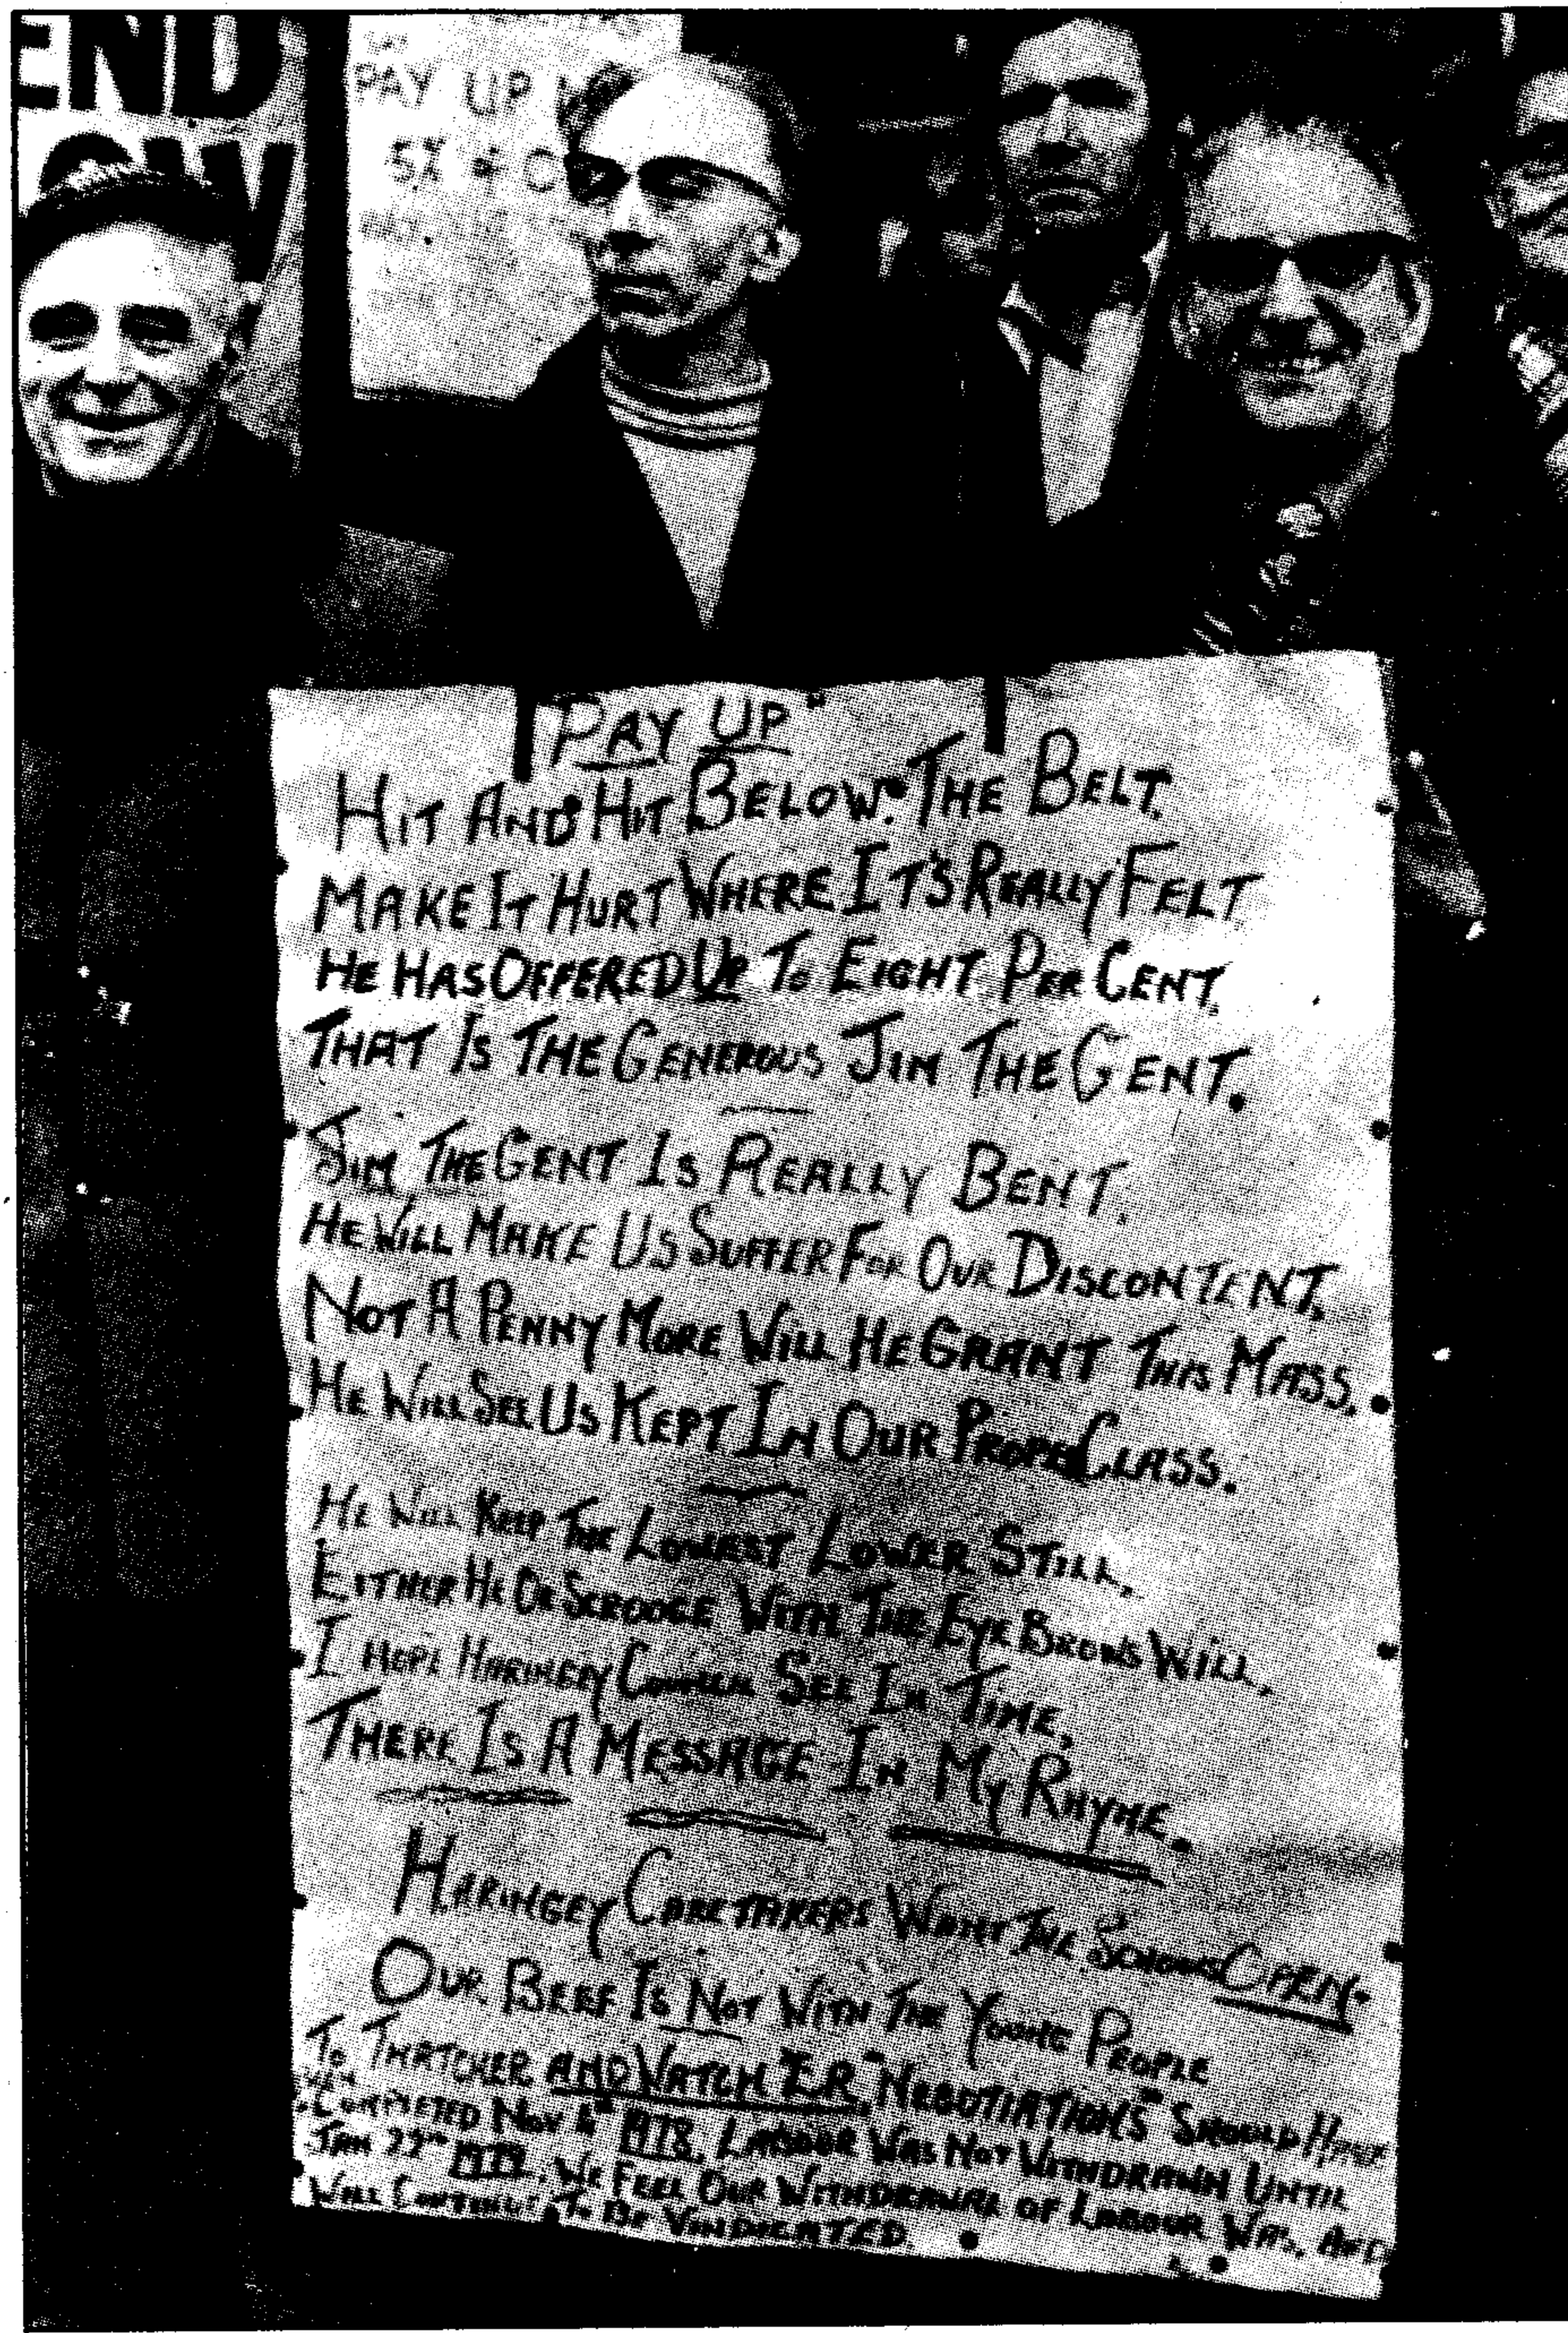 END
PAY UP
5% + C
"PAY UP"
HIT AND HIT BELOW. THE BELT.
MAKE IT HURT WHERE IT'S REALLY FELT
HE HAS OFFERED UP TO EIGHT PER CENT.
THAT IS THE GENEROUS JIM THE GENT.
JIM THE GENT IS REALLY BENT.
HE WILL MAKE US SUFFER FOR OUR DISCONTENT.
NOT A PENNY MORE WILL HE GRANT THIS MASS.
HE WILL SEE US KEPT IN OUR PROPER CLASS.
HE WILL KEEP THE LOWEST LOWER STILL,
EITHER HE OR SCROOGE WITH THE EYE BROWS WILL,
I HOPE HARINGEY COUNCIL SEE IN TIME,
THERE IS A MESSAGE IN MY RHYME.
HARINGEY CARETAKERS WANT THE SCHOOLS OPEN.
OUR BEEF IS NOT WITH THE YOUNG PEOPLE
TO THATCHER AND VATCH 'ER. "NEGOTIATIONS" SHOULD HAVE
COMPLETED NOV 4TH 1978. LABOUR WAS NOT WITHDRAWN UNTIL
JAN 22ND 1979. WE FEEL OUR WITHDRAWAL OF LABOUR WAS, AND
WILL CONTINUE TO BE VINDICATED.